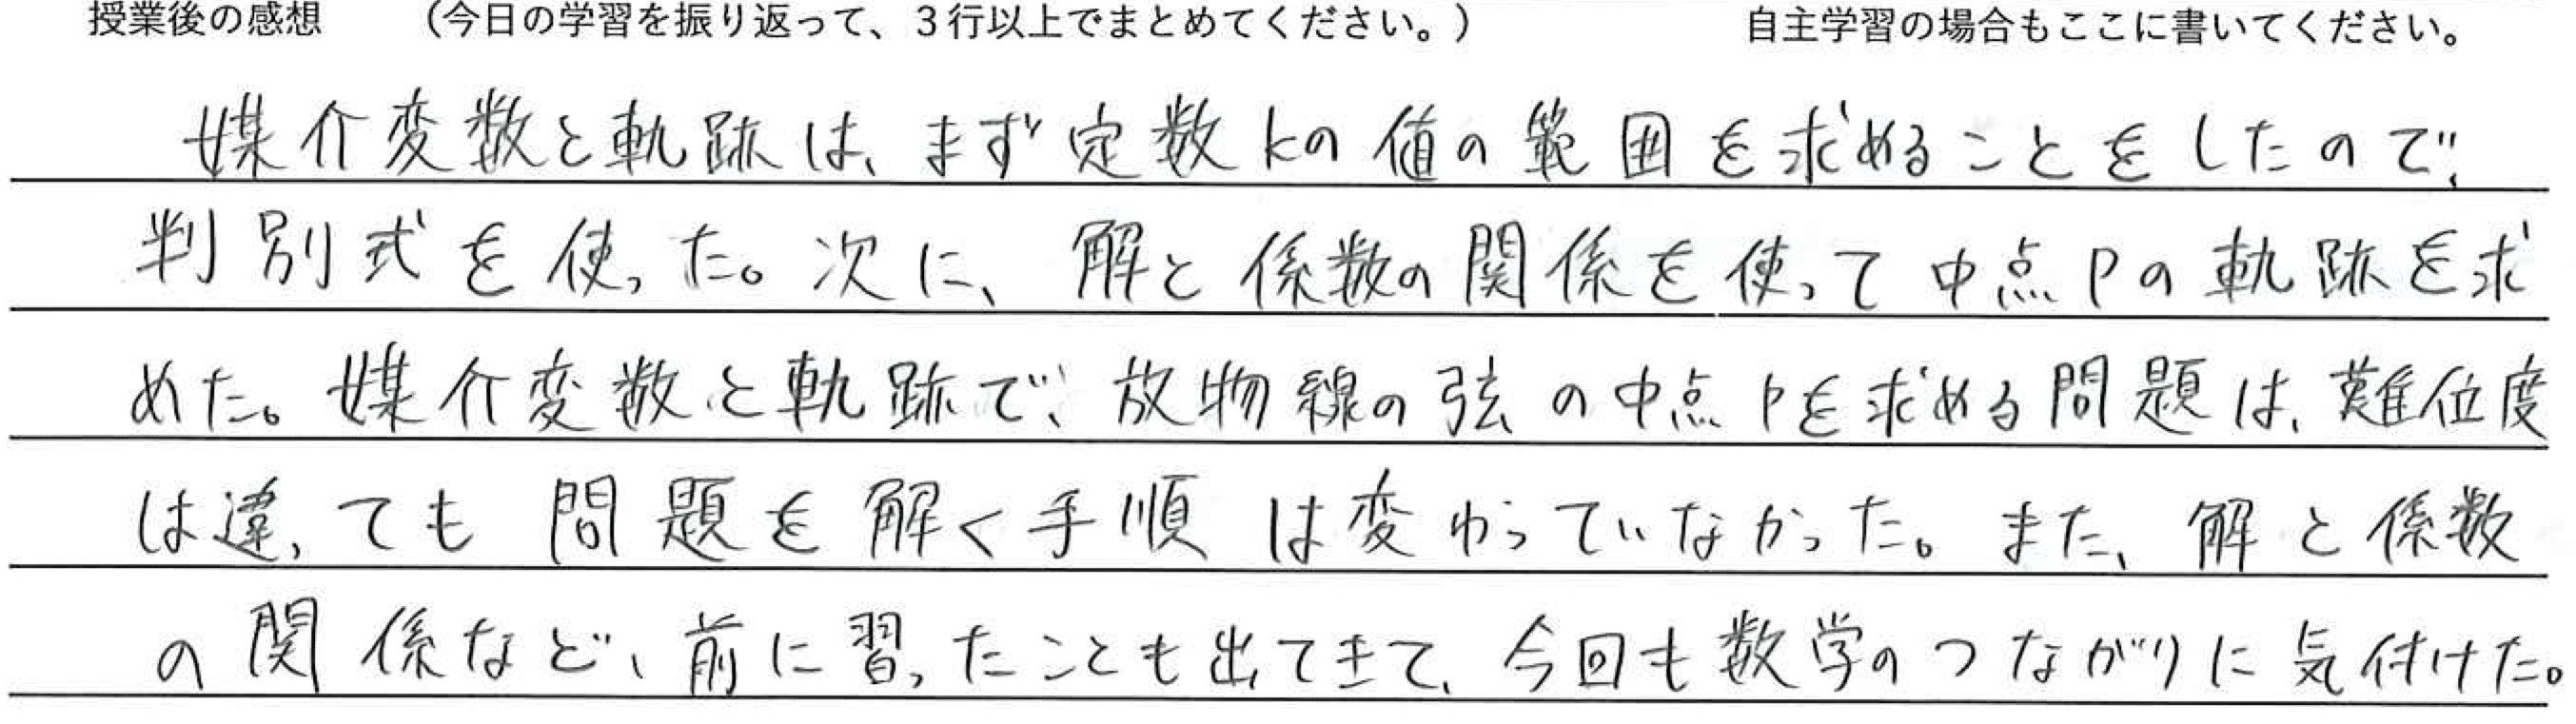 授業後の感想　（今日の学習を振り返って、３行以上でまとめてください。）　自主学習の場合もここに書いてください。
媒介変数と軌跡は、まず定数kの値の範囲を求めることをしたので、
判別式を使った。次に、解と係数の関係を使って中点Pの軌跡を求
めた。媒介変数と軌跡で、放物線の弦の中点Pを求める問題は、難位度
は違っても問題を解く手順は変わっていなかった。また、解と係数
の関係など、前に習ったことも出てきて、今回も数学のつながりに気付けた。